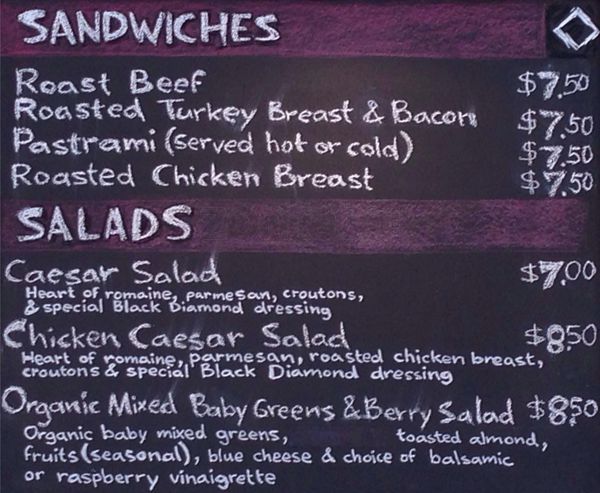 SANDWICHES
Roast Beef $7.50
Roasted Turkey Breast & Bacon $7.50
Pastrami (served hot or cold) $7.50
Roasted Chicken Breast $7.50
SALADS
Caesar Salad $7.00
Heart of romaine, parmesan, croutons,
& special Black Diamond dressing
Chicken Caesar Salad $8.50
Heart of romaine, parmesan, roasted chicken breast,
croutons & special Black Diamond dressing
Organic Mixed Baby Greens & Berry Salad $8.50
Organic baby mixed greens, toasted almond,
fruits (seasonal), blue cheese & choice of balsamic
or raspberry vinaigrette